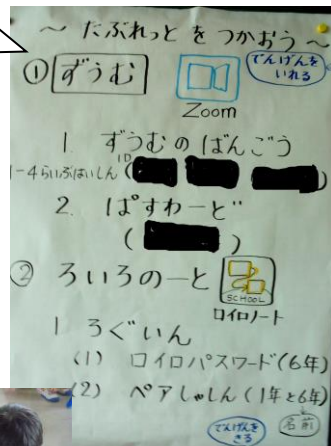 ～ たぶれっと を つかおう ～
でんげんを
いれる
① ずうむ
Zoom
1. ずうむ の ばんごう
1-4らいぶはいしん (ID
2. ぱすわーど
( )
② ろいろのーと
SCHOOL
ロイロノート
1 ろぐいん
(1) ロイロパスワード(6年)
(2) ペアしゃしん(1年と6年)
でんげんを
きる
名前